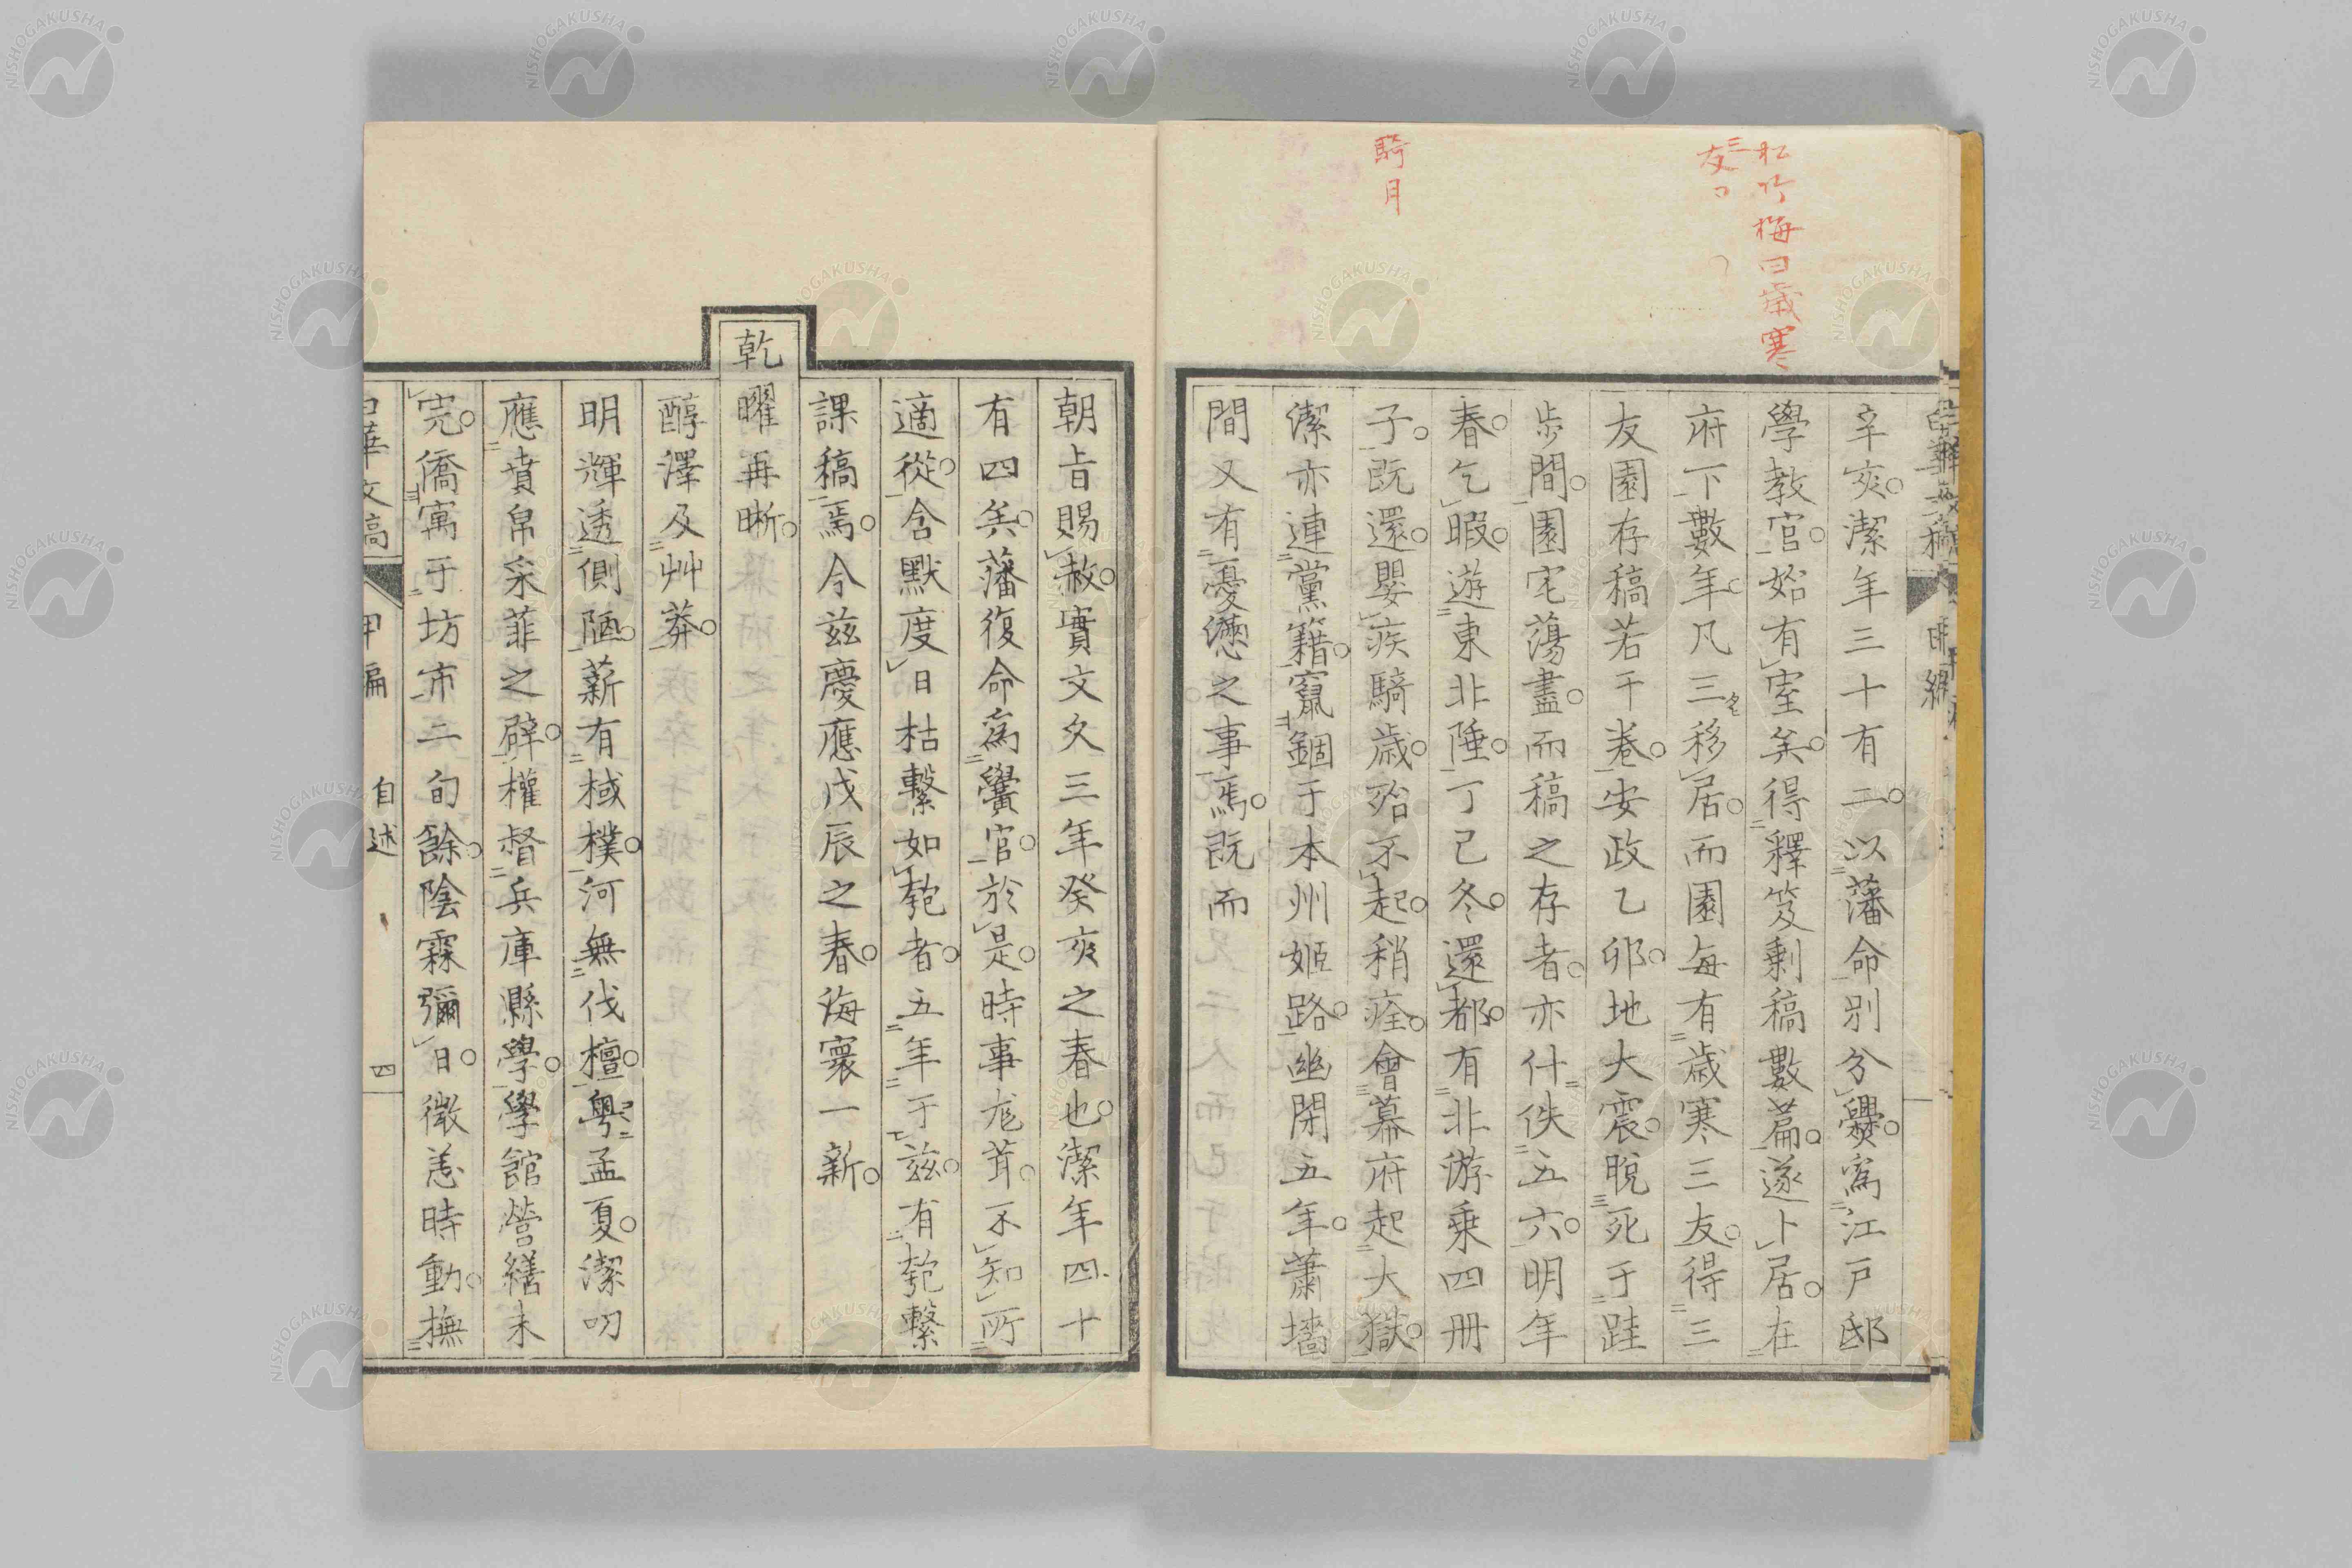 松竹梅曰歳寒
三友
騎月
辛亥。潔年三十有二。以藩命別分爨。爲江戸邸
學教官。始有室矣。得釋笈剰稿數篇。遂卜居。在
府下數年。凡三移居。而園毎有歳寒三友。得三
友園存稿若干卷。安政乙卯。地大震。脱死于跬
歩間。園宅蕩盡。而稿之存者。亦什佚五六。明年
春。乞暇。遊東北陲。丁巳冬。還都。有北游乗四册
子。既還。嬰疾騎歳。殆不起。稍痊。會幕府起大獄。
潔亦連黨籍。竄錮于本州姫路。幽閉五年。蕭墻
間又有憂懣之事焉。既而
朝旨賜赦。實文久三年癸亥之春也。潔年四十
有四矣。藩復命爲黌官。於是。時事尨茸。不知所
適從。含默度日。枯繋如匏者。五年于茲。有匏繋
課稿焉。今茲慶應戊辰之春。海寰一新。
乾曜再晰。
醇澤及艸莽。
明輝透側陋。薪有棫樸。河無伐檀。粤孟夏。潔叨
應賁帛采菲之辟。權督兵庫縣學。學館營繕未
完。僑寓于坊市二旬餘。陰霖彌日。微恙時動。撫
白華文稿 甲編 自述 四